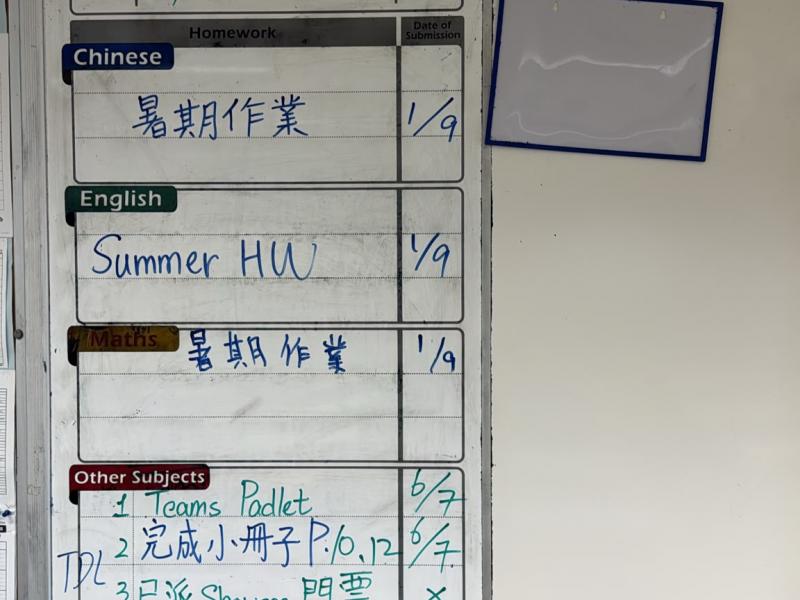 Homework
Date of Submission
Chinese
暑期作業 1/9
English
Summer HW 1/9
Maths
暑期作業 1/9
Other Subjects
1 Teams Padlet 6/7
TDL
2 完成小冊子 P.10、12 6/7
3 已派 門票 x